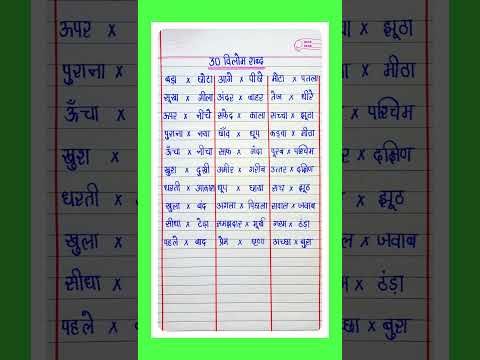 30 विलोम शब्द
बड़ा x छोटा आगे x पीछे मोटा x पतला
सूखा x गीला अंदर x बाहर तेज x धीरे
ऊपर x नीचे सफेद x काला सच्चा x झूठा
पुराना x नया छाँव x धूप कड़वा x मीठा
ऊँचा x नीचा साफ x गंदा पूरब x पश्चिम
खुश x दुखी अमीर x गरीब उत्तर x दक्षिण
धरती x आकाश धूप x छाया सच x झूठ
खुला x बंद अगला x पिछला सवाल x जवाब
सीधा x टेढ़ा समझदार x मूर्ख गरम x ठंडा
पहले x बाद प्रेम x घृणा अच्छा x बुरा
ऊपर x
पुराना x
ऊँचा x
खुश x
धरती x
खुला x
सीधा x
पहले x
x झूठा
x मीठा
x पश्चिम
x दक्षिण
x झूठ
x जवाब
x ठंड़ा
x बुरा